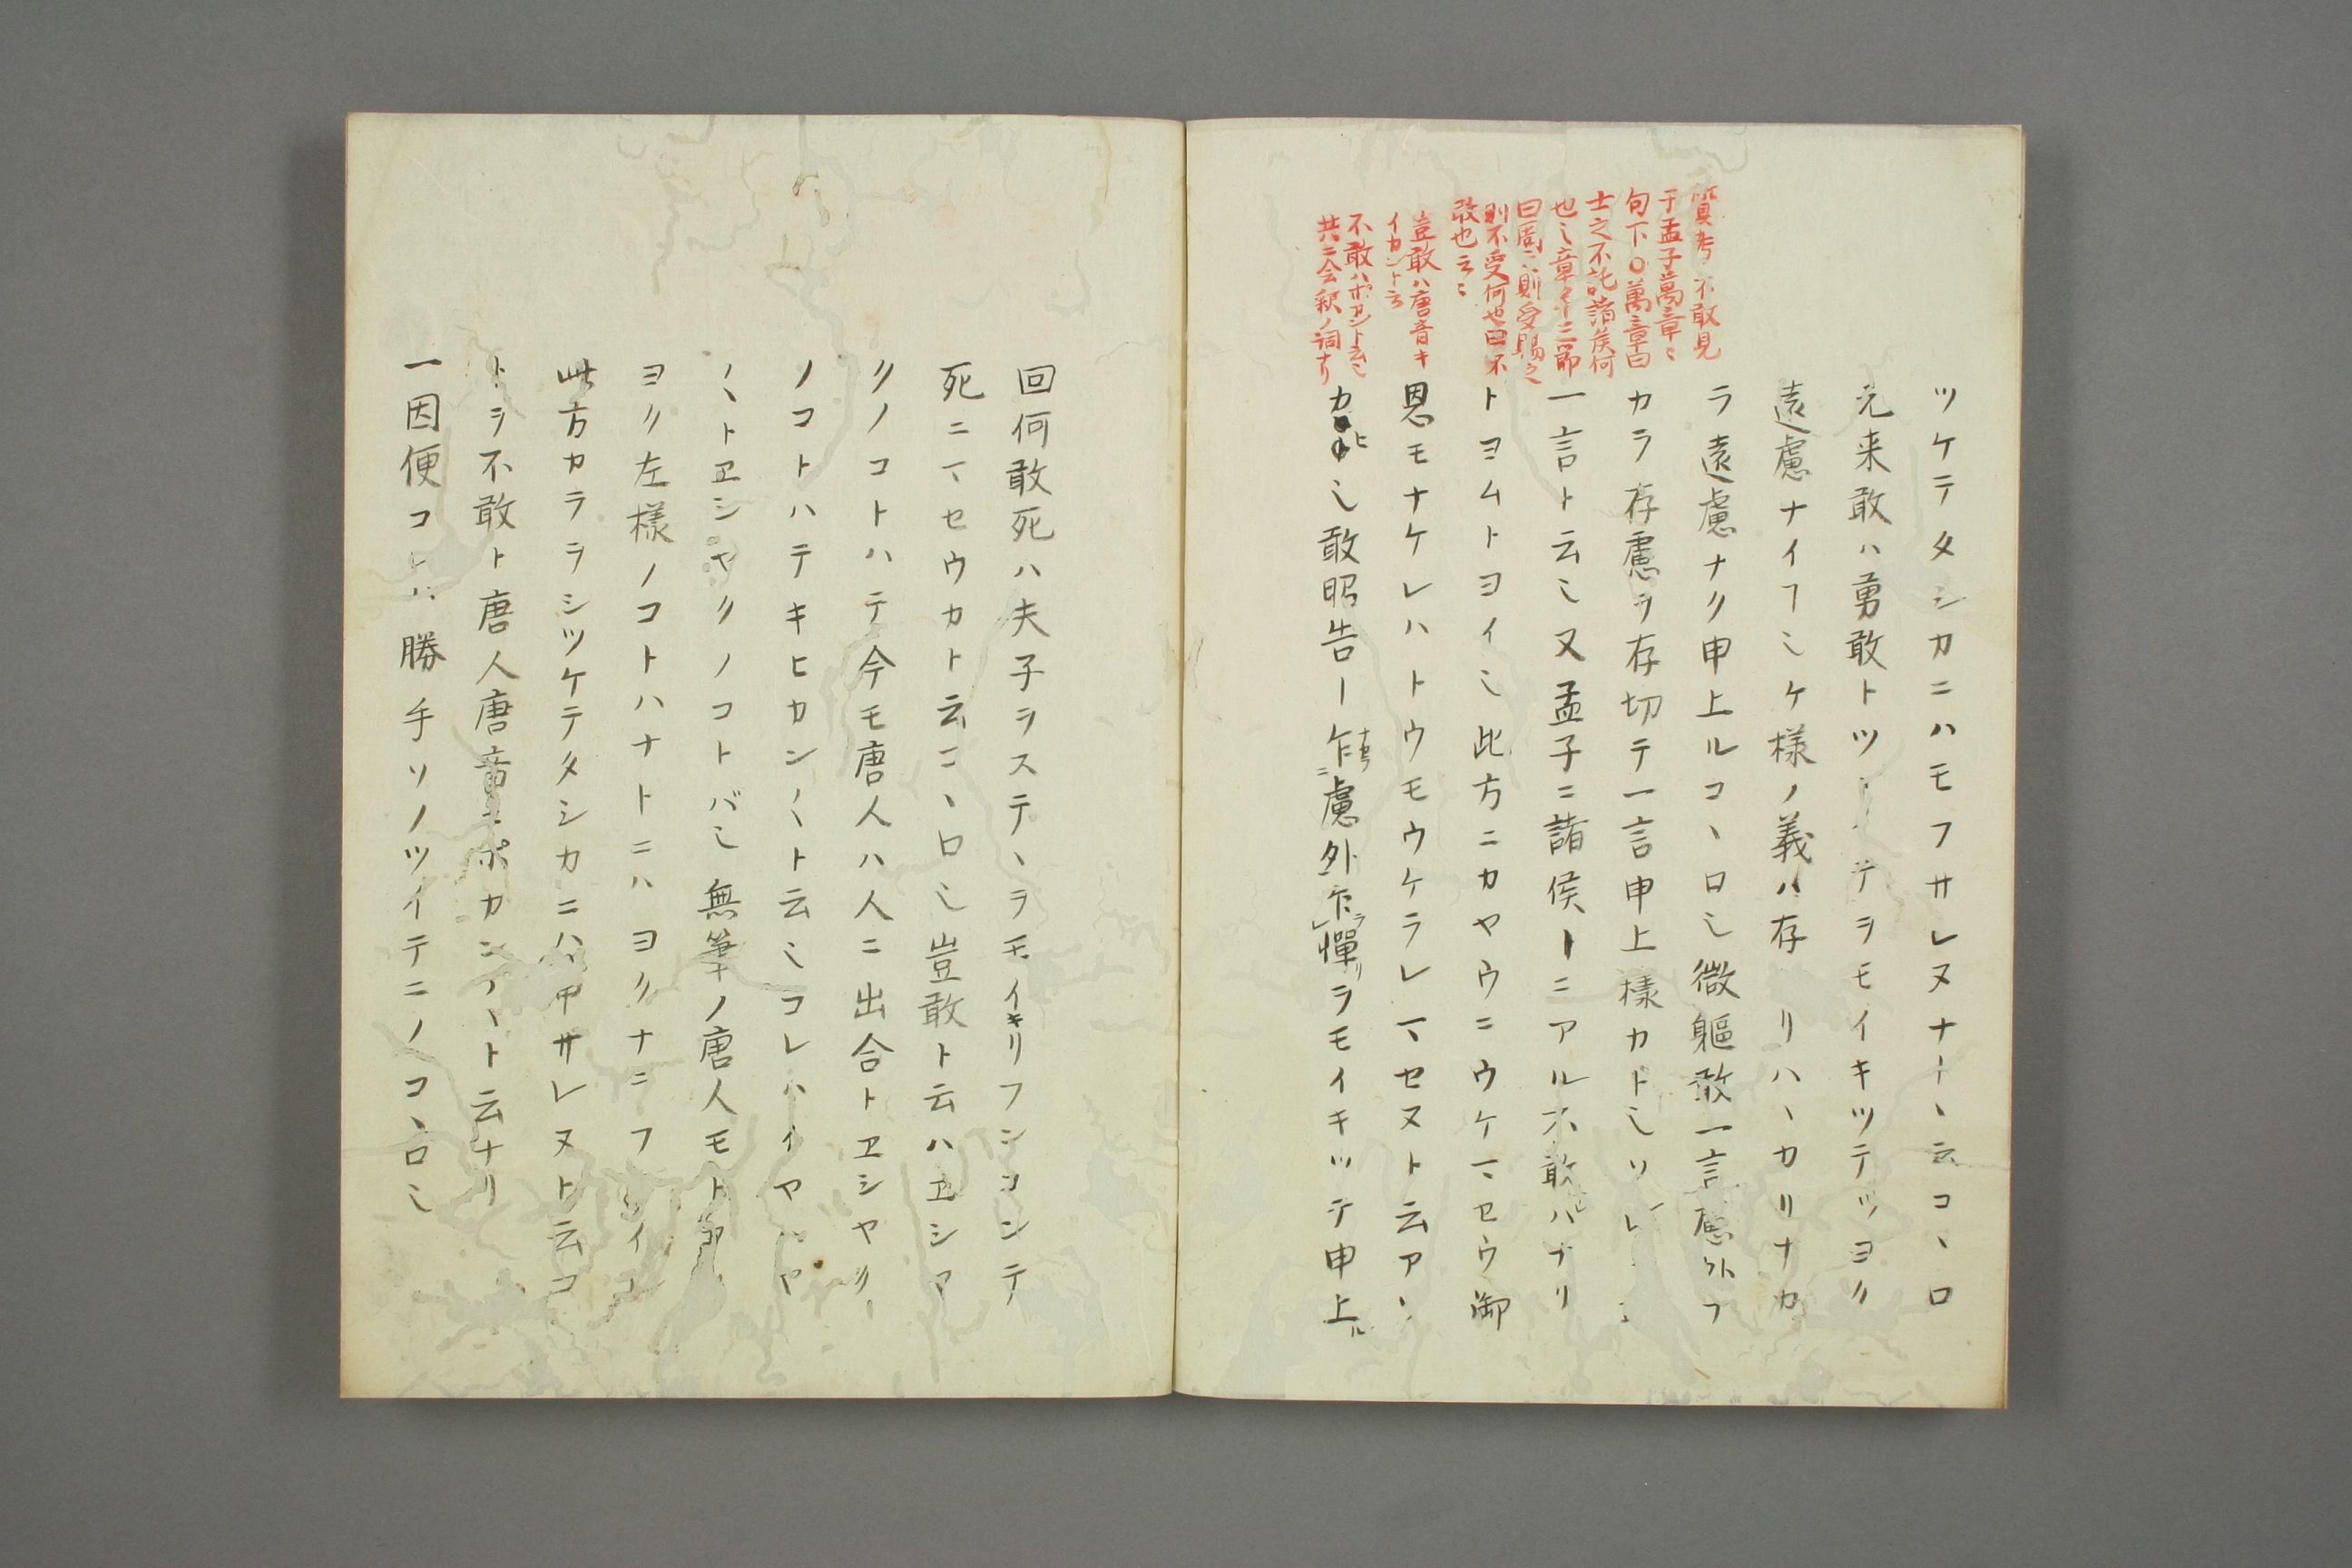 質考 不敢見
于孟子萬章
句下〇萬章曰
士之不託諸侯何
也
則受賜之
則不受何也曰不
敢也云〻
豈敢ハ唐音キ
イカント云
不敢ハポカント云
共ニ会釈ノ詞ナリ
ツケテタシカニハモフサレヌナ云コヽロ
元来敢ハ勇敢トツ テヲモイキツテツヨク
遠慮ナイ ケ様ノ義ハ存 リハヽカリナカ
ラ遠慮ナク申上ルコヽロ〻微軀敢一言慮外フ
カラ存慮ヲ存切テ一言申上様カト〻ソレ
一言ト云〻又孟子ニ諸侯ーニアル不敢ハナリ
トヨムトヨイ〻此方ニカヤウニウケマセウ御
恩モナケレハトウモウケラレマセヌト云アヽ
敢昭告ー乍慮外乍憚ヲモイキツテ申上ル
回何敢死ハ夫子ヲステヽヲモイキリフンコンテ
死ニマセウカト云コヽロ〻豈敢ト云ハヱシア
クノコトハテ今モ唐人ハ人ニ出合トヱシヤク
ノコトハテキヒカン〱ト云〻コレハイヤハヤ
〱トヱシヤクノコトバ〻無筆ノ唐人モト
ヨリ左様ノコトハナトニハヨクナニフ
此方カラヲシツケテタシカニハ申サレヌト云コ
トヲ不敢ト唐人唐音ニポカン ヽト云ナリ
一因便コレハ勝手ソノツイテニノコヽロ〻